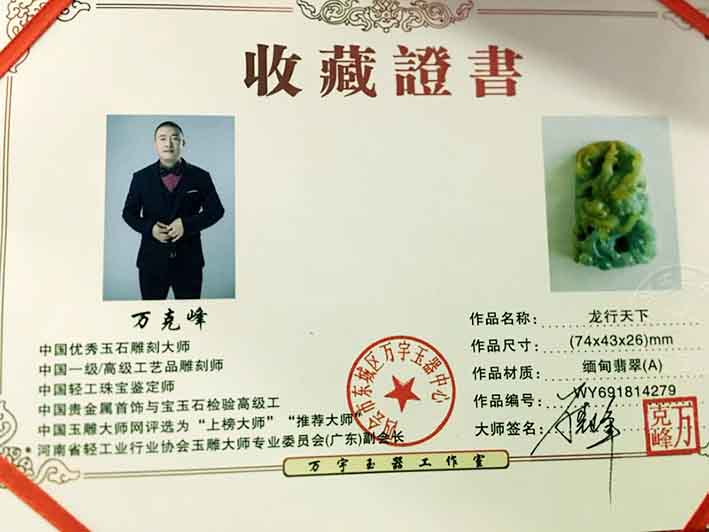 收藏證書
万克峰
中国优秀玉石雕刻大师
中国一级/高级工艺品雕刻师
中国轻工珠宝鉴定师
中国贵金属首饰与宝玉石检验高级工
中国玉雕大师网评选为“上榜大师” “推荐大师”
河南省轻工业行业协会玉雕大师专业委员会(广东)副会长
四会市东城区万宇玉器中心
作品名称: 龙行天下
作品尺寸: (74x43x26)mm
作品材质: 缅甸翡翠(A)
作品编号: WY691814279
大师签名:
万克峰
万宇玉器工作室